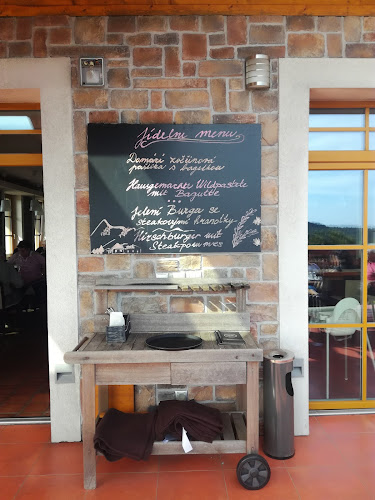 Jídelní menu
Domácí zvěřinová
paštika s bagetkou
Hausgemachte Wildpastete
mit Bagutte
Jelení Burga se
steakovými hranolky
Hirschburger mit
Steakpommes